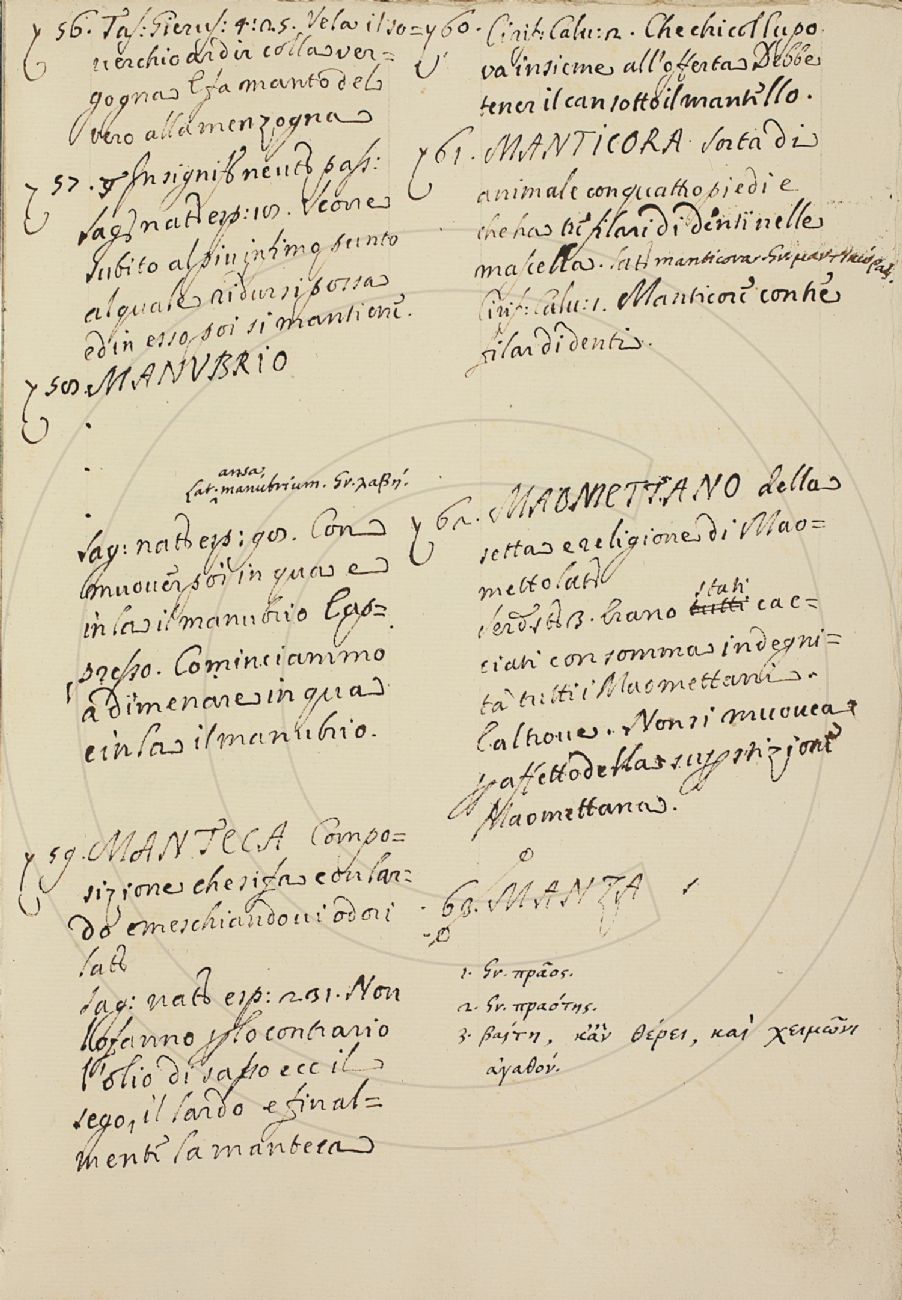 56. Tas: Gierus: 4: 25. Vela il so=
uerchio ardir colla ver-
gogna E fa manto del
vero alla menzogna
57. § In signif neutr pass:
Sag: nat esp: 10. Vicorre
subito al piu infimo punto
al quale ridursi possa
ed in esso poi si mantiene.
58. MANVBRIO
ansa,
Lat. manubrium. Gr. λαβή.
Sag: nat esp: 90. Con
muover poi in qua e
in la il manubrio E ap=
presso. Cominciammo
a dimenare in qua
e in la il manubrio.
59. MANTECA Compo=
sizione che si fa con lar=
do e meschiandoui odori
lat
Sag: nat esp: 231. Non
lo fanno p lo contrario
l'olio di sasso ecc il
sego, il lardo e final=
mente la manteca
60. Cirif: Calu: 2. Che chi col lupo
va insieme all'offerta Debbe
tener il can sotto il mantello.
61. MANTICORA Sorta di
animale con quattro piedi e
che ha tre filari di denti nelle
mascella. lat manticora Gr.
Cirif: Calu: 1. Manticore con tre
filar di denti.
62. MAOMETTANO della
setta e religione di Mao=
metto lat
stati
Serd: st: 3. Erano tutti cac=
ciati con somma indegni=
tà tutti i Maomettani.
E altroue. Non si muoueva
p affetto della superstizione
Maomettana.
63. MANZA
1. Gr. πρᾶος.
2. Gr. πραότης.
3. βαίτη, κἂν θέρει, καὶ χειμῶνι
ἀγαθόν.